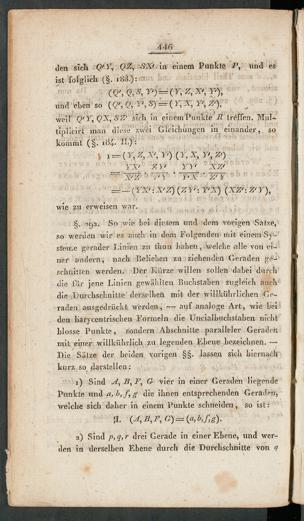 446
den sich Q'Y, QZ, SX' in einem Punkte P, und es
ist folglich (§. 188.):
(Q', Q, S, Y') = (Y, Z, X', Y'),
und eben so (Q', Q, Y', S) = (Y, X, Y', Z'),
weil Q'Y, QX, SZ' sich in einem Punkte R treffen. Mul-
tiplicirt man diese zwei Gleichungen in einander, so
kommt (§. 184. II.):
1 = (Y, Z, X', Y') (Y, X, Y', Z')
wie zu erweisen war.
So wie bei diesem und dem vorigen Satze,
so werden wir es auch in dem Folgenden mit einem Sy-
steme gerader Linien zu thun haben, welche alle von ei-
ner andern, nach Belieben zu ziehenden Geraden ge-
schnitten werden. Der Kürze willen sollen dabei durch
die für jene Linien gewählten Buchstaben zugleich auch
die Durchschnitte derselben mit der willkührlichen Ge-
raden ausgedrückt werden, — auf analoge Art, wie bei
den barycentrischen Formeln die Uncialbuchstaben nicht
blosse Punkte, sondern Abschnitte paralleler Geraden
mit einer willkührlich zu legenden Ebene bezeichnen. —
Die Sätze der beiden vorigen §§. lassen sich hiernach
kurz so darstellen:
1) Sind A, B, F, G vier in einer Geraden liegende
Punkte und a, b, f, g die ihnen entsprechenden Geraden,
welche sich daher in einem Punkte schneiden, so ist:
(A, B, F, G) = (a, b, f, g).
2) Sind p, q, r drei Gerade in einer Ebene, und wer-
den in derselben Ebene durch die Durchschnitte von q